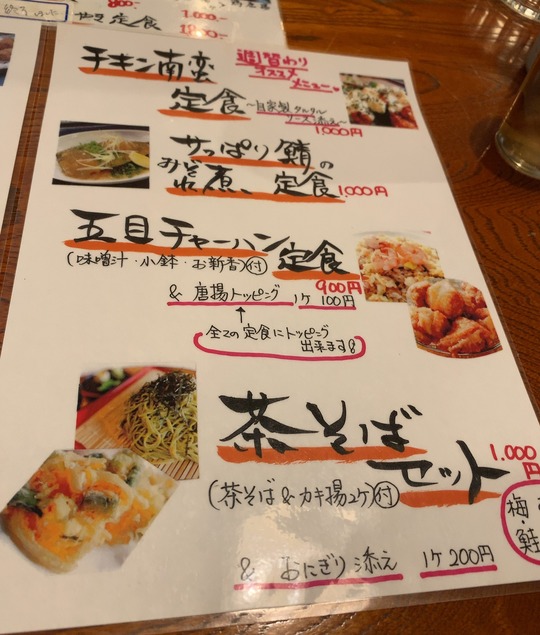 800-
1.000-
やき定食
1850-
チキン南蛮
週替わり
オススメ
メニュー
定食
～自家製 タルタル
ソース添え～
1,000円
サッぱり鯖の
みぞれ煮、定食 1,000円
五目チャーハン
(味噌汁・小鉢・お新香)付 定食
900円
& 唐揚トッピング 1ケ 100円
↑
全ての定食にトッピング
出来ます
茶そば
セット
1.000円
(茶そば&カキ揚2ケ)付
梅
・鮭
& おにぎり添え 1ケ 200円